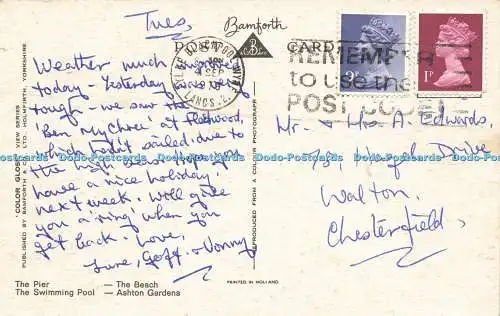 Tues,
Weather much improved
today - Yesterday was very
rough - we saw the
'Ben My Chree' at Fleetwood,
which hadn't sailed due to
the high seas. Hope you
have a nice holiday
next week. Will give
you a 'ring' when you
get back. Love,
June, Geoff & Jonny
The Pier — The Beach
The Swimming Pool — Ashton Gardens
"COLOR GLOSS" VIEW SERIES
PUBLISHED BY BAMFORTH & CO. LTD HOLMFIRTH, YORKSHIRE
REPRODUCED FROM A COLOUR PHOTOGRAPH
PRINTED IN HOLLAND
Bamforth
B
POST CARD
SEP
LANCS.
REMEMBER
to use the
POST CODE
1P
Mr & Mrs A. Edwards
Drive
Walton,
Chesterfield,
Dodo-Postcards Dodo-Postcards Dodo-Postcards Dodo-Postcards